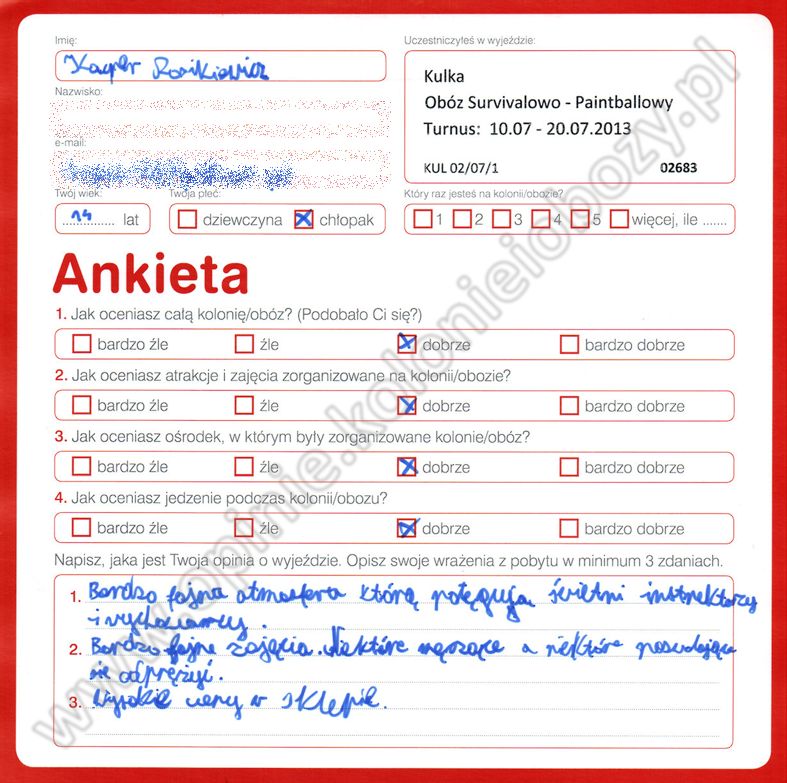 Imię:
Kacper
Nazwisko:
e-mail:
Twój wiek:
14 lat
Twoja płeć:
dziewczyna chłopak
Uczestniczyłeś w wyjeździe:
Kulka
Obóz Survivalowo - Paintballowy
Turnus: 10.07 - 20.07.2013
KUL 02/07/1 02683
Który raz jesteś na kolonii/obozie?
1 2 3 4 5 więcej, ile .......
Ankieta
1. Jak oceniasz całą kolonię/obóz? (Podobało Ci się?)
bardzo źle źle dobrze bardzo dobrze
2. Jak oceniasz atrakcje i zajęcia zorganizowane na kolonii/obozie?
bardzo źle źle dobrze bardzo dobrze
3. Jak oceniasz ośrodek, w którym były zorganizowane kolonie/obóz?
bardzo źle źle dobrze bardzo dobrze
4. Jak oceniasz jedzenie podczas kolonii/obozu?
bardzo źle źle dobrze bardzo dobrze
Napisz, jaka jest Twoja opinia o wyjeździe. Opisz swoje wrażenia z pobytu w minimum 3 zdaniach.
1. Bardzo fajna atmosfera którą potęgują świetni instruktorzy
i wychowawcy.
2. Bardzo fajne zajęcia. Niektóre męczące a niektóre pozwalające
się odprężyć.
3. Wysokie ceny w sklepie.
www.opinie.kolonieiobozy.pl